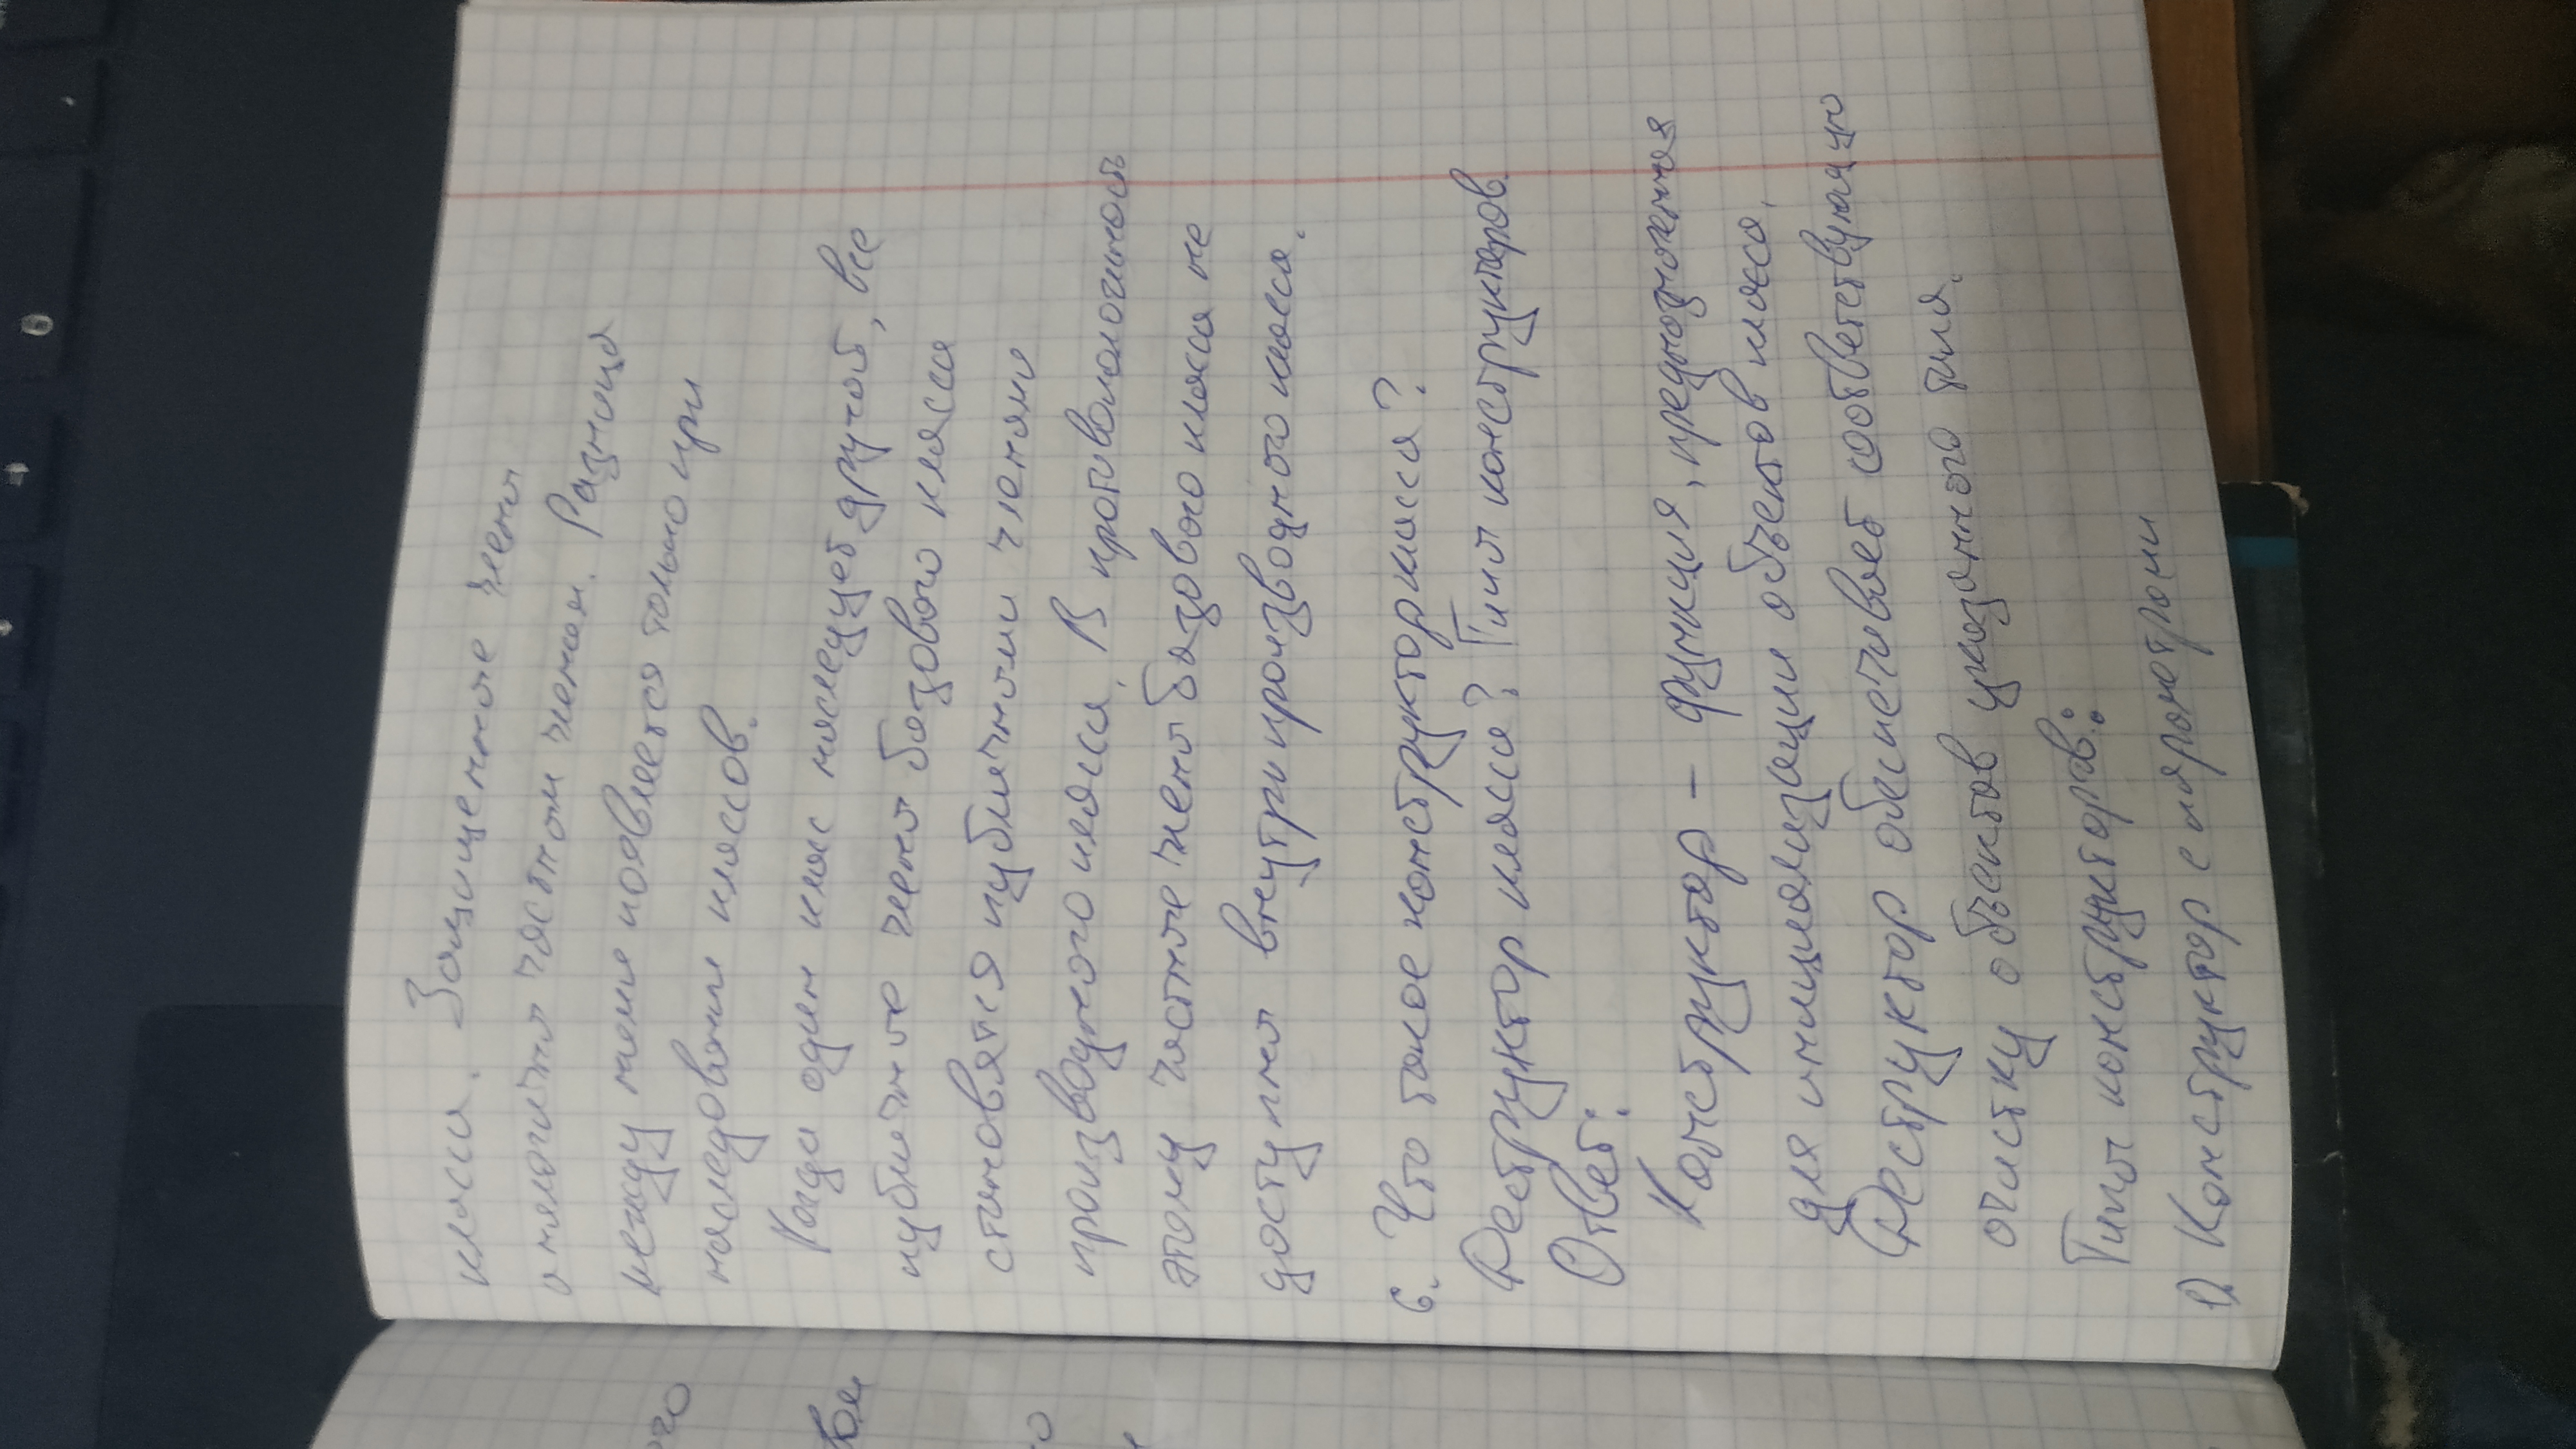 класса. Защищенные члены
аналогичны частным членам. Разница
между ними появляется только при
наследовании классов.
Когда один класс наследует другой, все
публичные члены базового класса
становятся публичными членами
производного класса. В противоположность
этому частные члены базового класса не
доступны внутри производного класса.
6. Что такое конструктор класса?
Деструктор класса? Типы конструкторов.
Ответ:
Конструктор – функция, предназначенная
для инициализации объектов класса.
Деструктор обеспечивает соответствующую
очистку объектов указанного типа.
Типы конструкторов:
1). Конструктор с параметрами